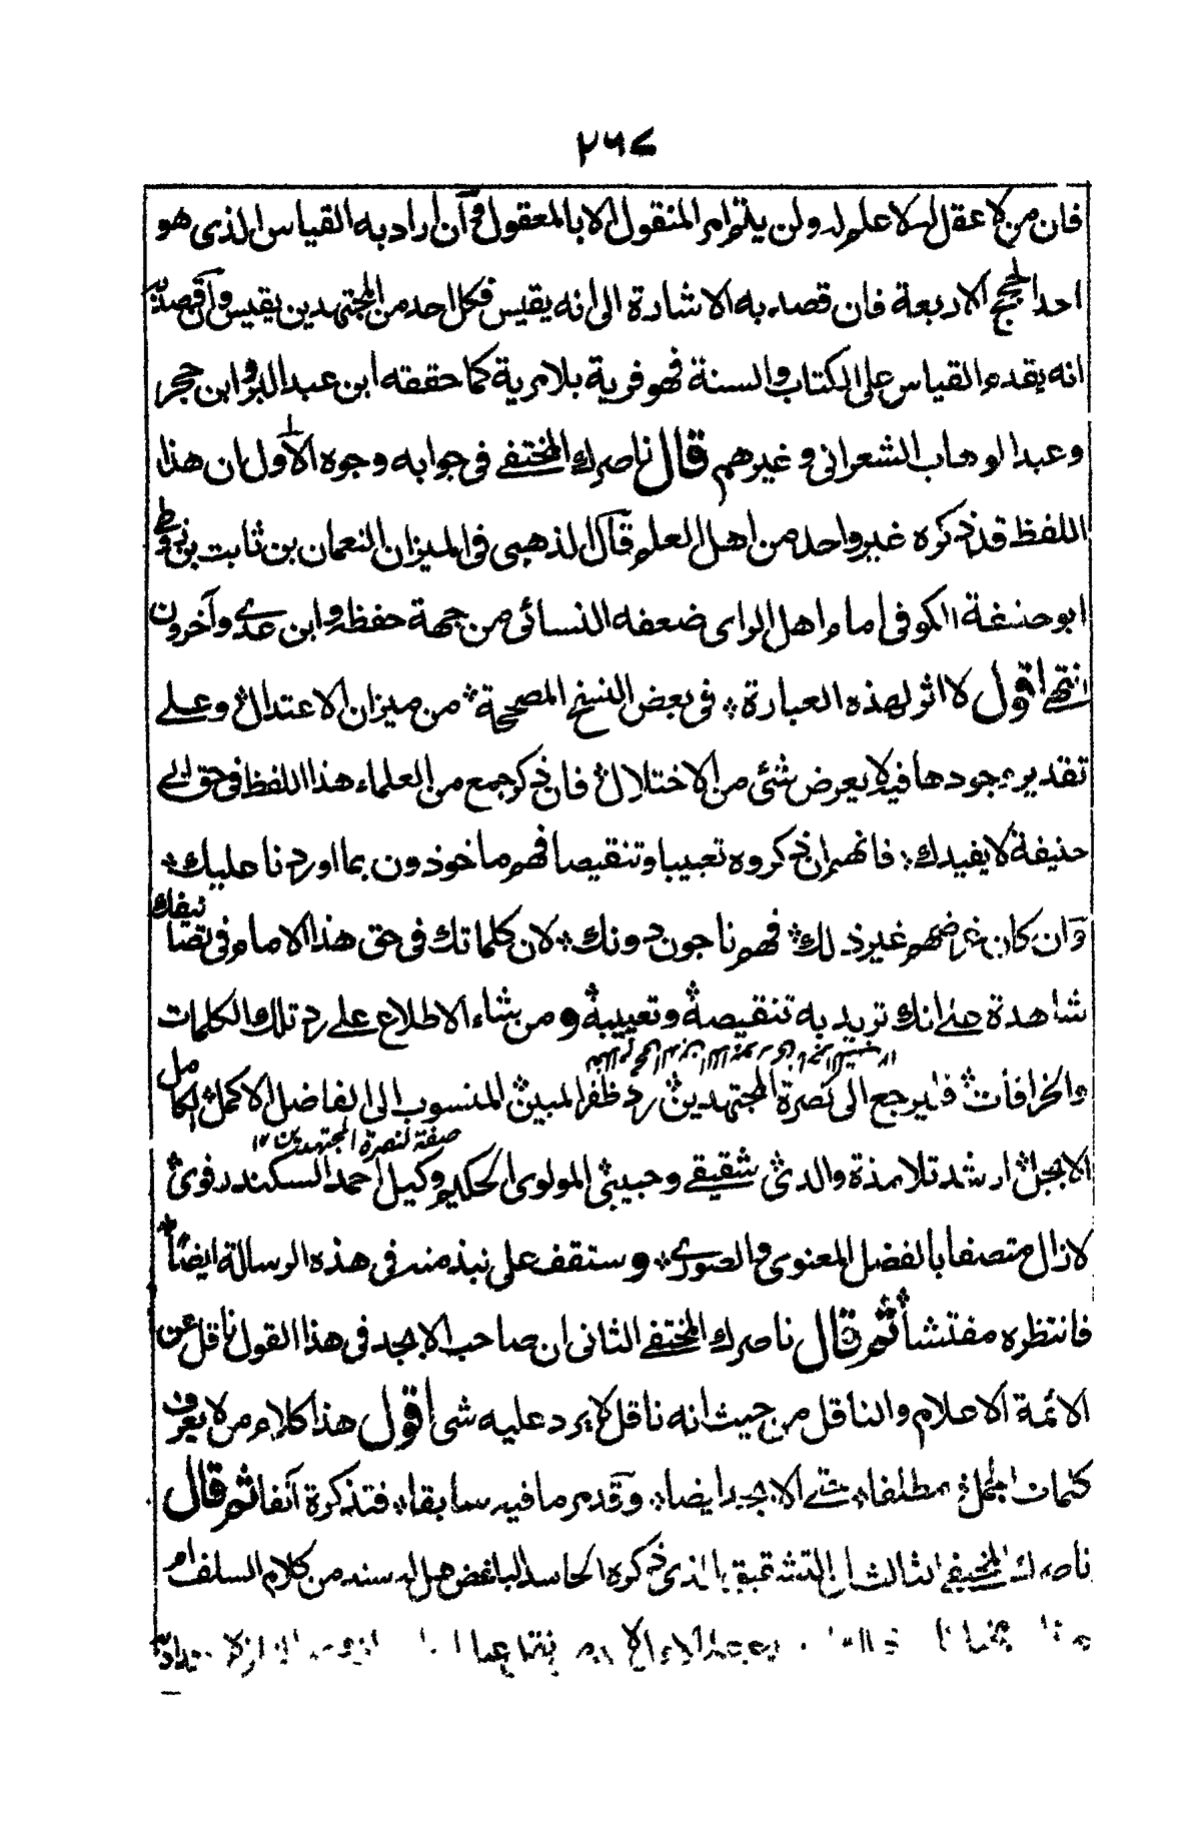 ٢٦٧
فان من لا عقل له لا علم له ولن يلتم امر المنقول الا بالمعقول وآن اراد به القياس الذى هو
احد الحجج الاربعة فان قصد به الاشارة الى انه يقيس فكل احد من المجتهدين يقيس وآن قصد
انه يقدم القياس على الكتاب والسنة فهو فرية بلا مرية كما حققه ابن عبد البر وابن حجر
وعبد الوهاب الشعرانى وغيرهم قال ناصرك المختفے فى جوابه وجوه الاول ان هذا
اللفظ قد ذكره غير واحد من اهل العلم قآل الذهبى فى الميزان النعمان بن ثابت بن زوطے
ابو حنيفة الكوفى امام اهل الراى ضعفه النسائى من جهة حفظه وابن عدے وآخرون
انتهے اقول لا اثر لهذه العبارة ؞ فى بعض النسخ المصححة ؞ من ميزان الاعتدال ؞ وعلے
تقدير وجودها فيه لا يعرض شئ من الاختلال ؞ فان ذكر جمع من العلماء هذا اللفظ فى حق ابے
حنيفة لا يفيدك ؞ فانهم ان ذكروه تعييبا وتنقيصا فهم ماخوذون بما اوردنا عليك ؞
وآن كان غرضهم غير ذلك ؞ فهم ناجون دونك ؞ لان كلماتك فى حق هذا الامام فى تصانيفك
شاهدة علے انك تريد به تنقيصه ؞ وتعييبه ؞ ومن شاء الاطلاع علے رد تلك الكلمات
والخرافات ؞ فليرجع الى نصرة المجتهدين ؞ رد ظفر المبين ؞ المنسوب الى الفاضل الاكمل ؞ الكامل
صفة لنصرة المجتهدين ١٢
الابجل ؞ ارشد تلامذة والدى ؞ شقيقے وحبيبى ؞ المولوى الحكيم وكيل احمد السكندرفورى ؞
لا زال متصفا بالفضل المعنوى والصورے ؞ وستقف على نبذ منه فى هذه الرسالة ايضا ؞
فانتظره مفتشا ؞ ثم قال ناصرك المختفے الثانى ان صاحب الابجد فى هذا القول ناقل عن
الائمة الاعلام والناقل من حيث انه ناقل لا يرد عليه شى اقول هذا كلام من لا يعرف
كلمات الجمل ؞ مطلقا ؞ حتے الابجد ايضا ؞ وقد مر ما فيه سابقا ؞ فتذكره آنفا ثم قال
ناصرك المختفے الثالث ان التشقيق الذى ذكره الحاسد الباغض هل له سند من كلام السلف ام